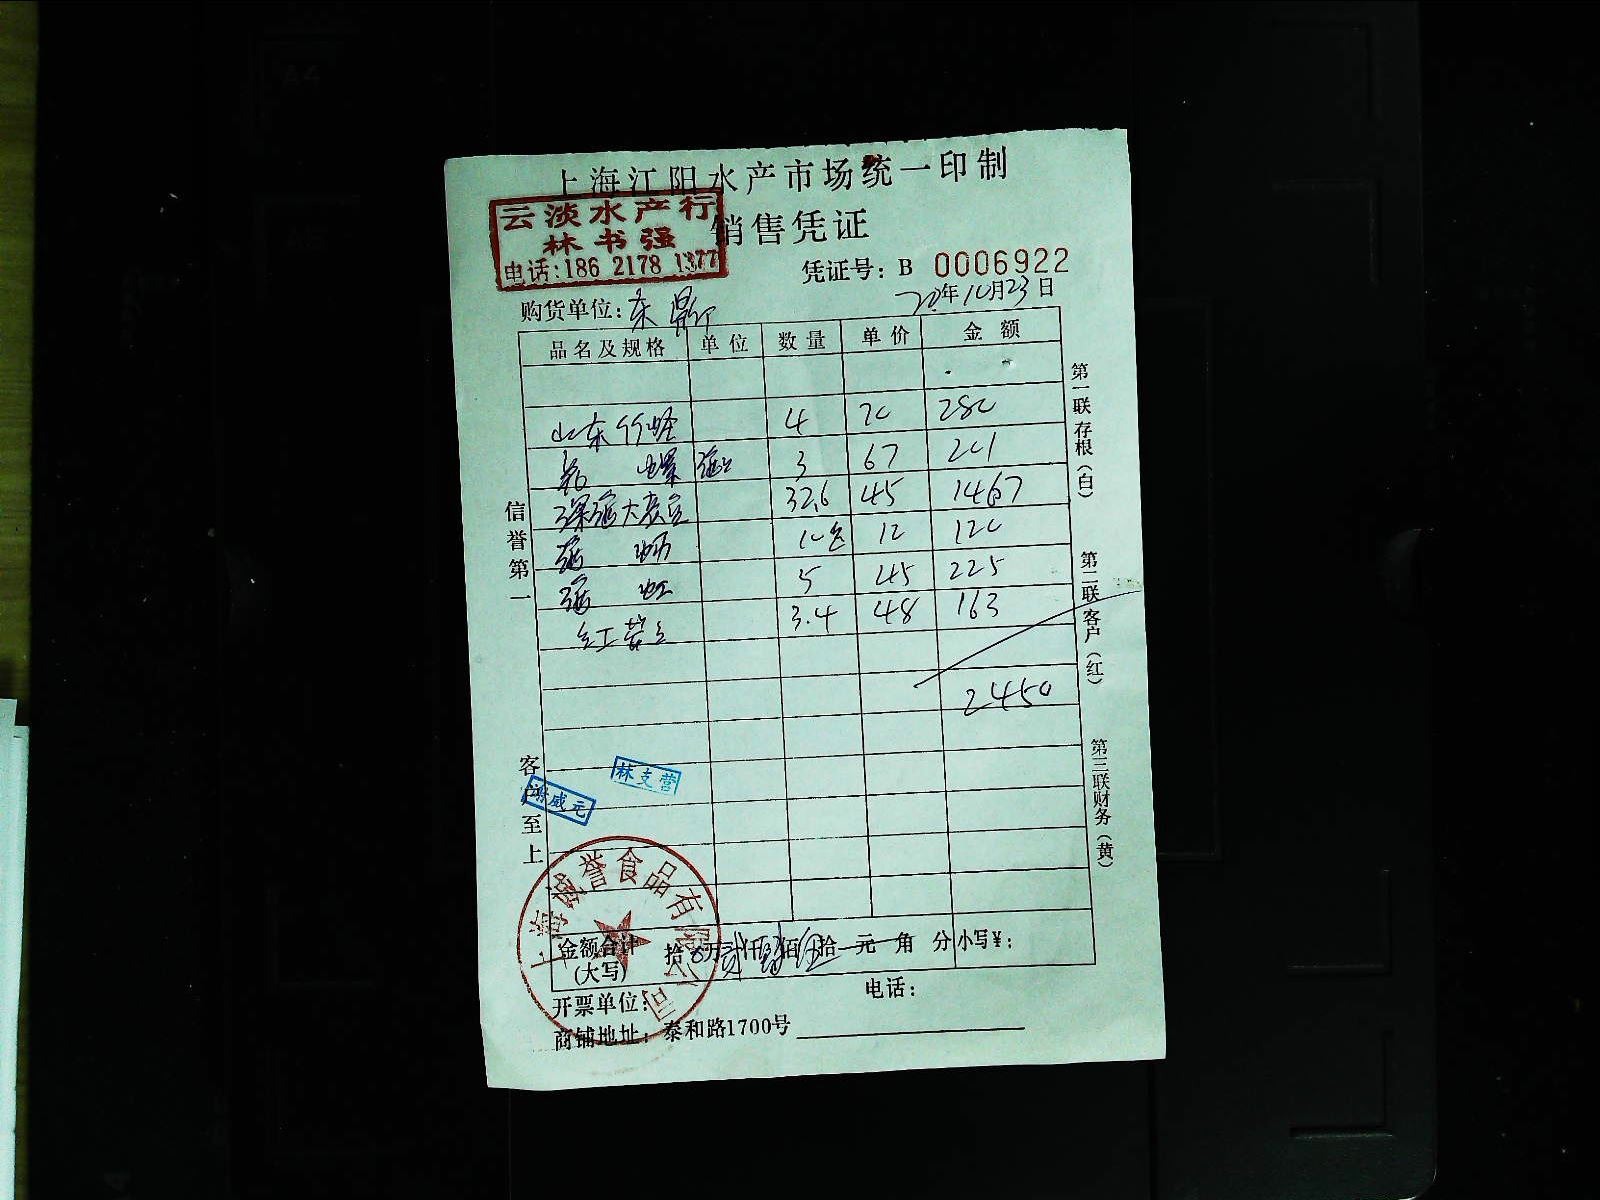 上海江阳水产市场统一印制
云淡水产行
林书强
电话:186 2178 1377
销售凭证
凭证号: B 0006922
购货单位: 东
20年10月23日
品名及规格 单位 数量 单价 金额
山东竹蛏 4 70 280
螺 3 67 201
深海大 32.6 45 1467
10包 12 120
海虹 5 45 225
红 3.4 48 163
2450
信誉第一
客户至上
第一联存根(白)
第二联客户(红)
第三联财务(黄)
林支营
威元
上海诚誉食品有限公司
金额合计(大写) 拾 万贰仟肆佰伍拾 元 角 分 小写¥:
开票单位: 电话:
商铺地址: 泰和路1700号